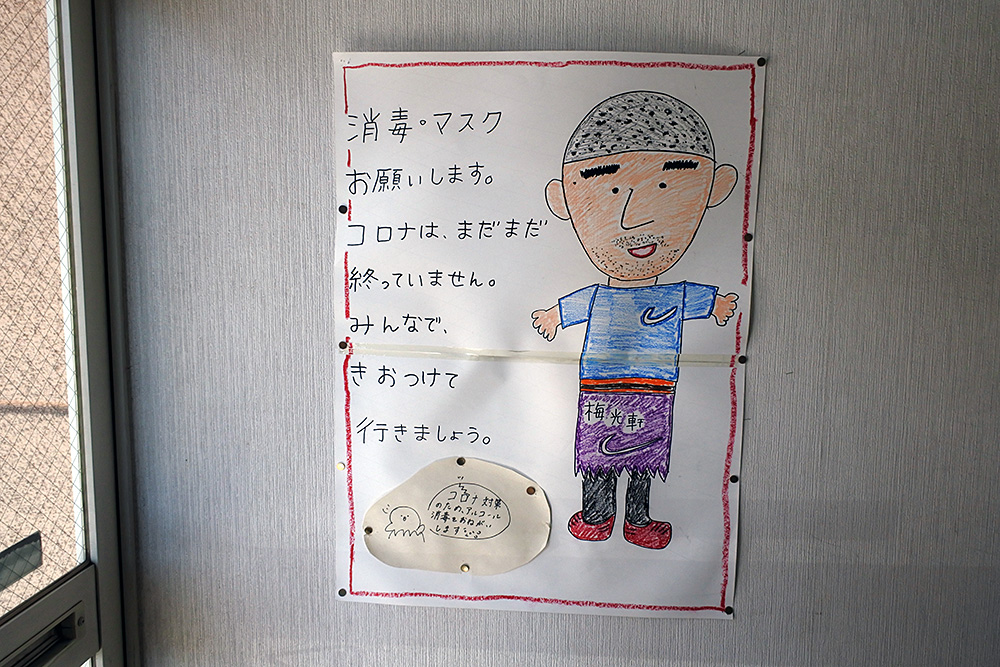 消毒・マスク
お願いします。
コロナは、まだまだ
終っていません。
みんなで、
きおつけて
行きましょう。
梅光軒
コロナ対策
のため、アルコール
消毒をおねがい
します